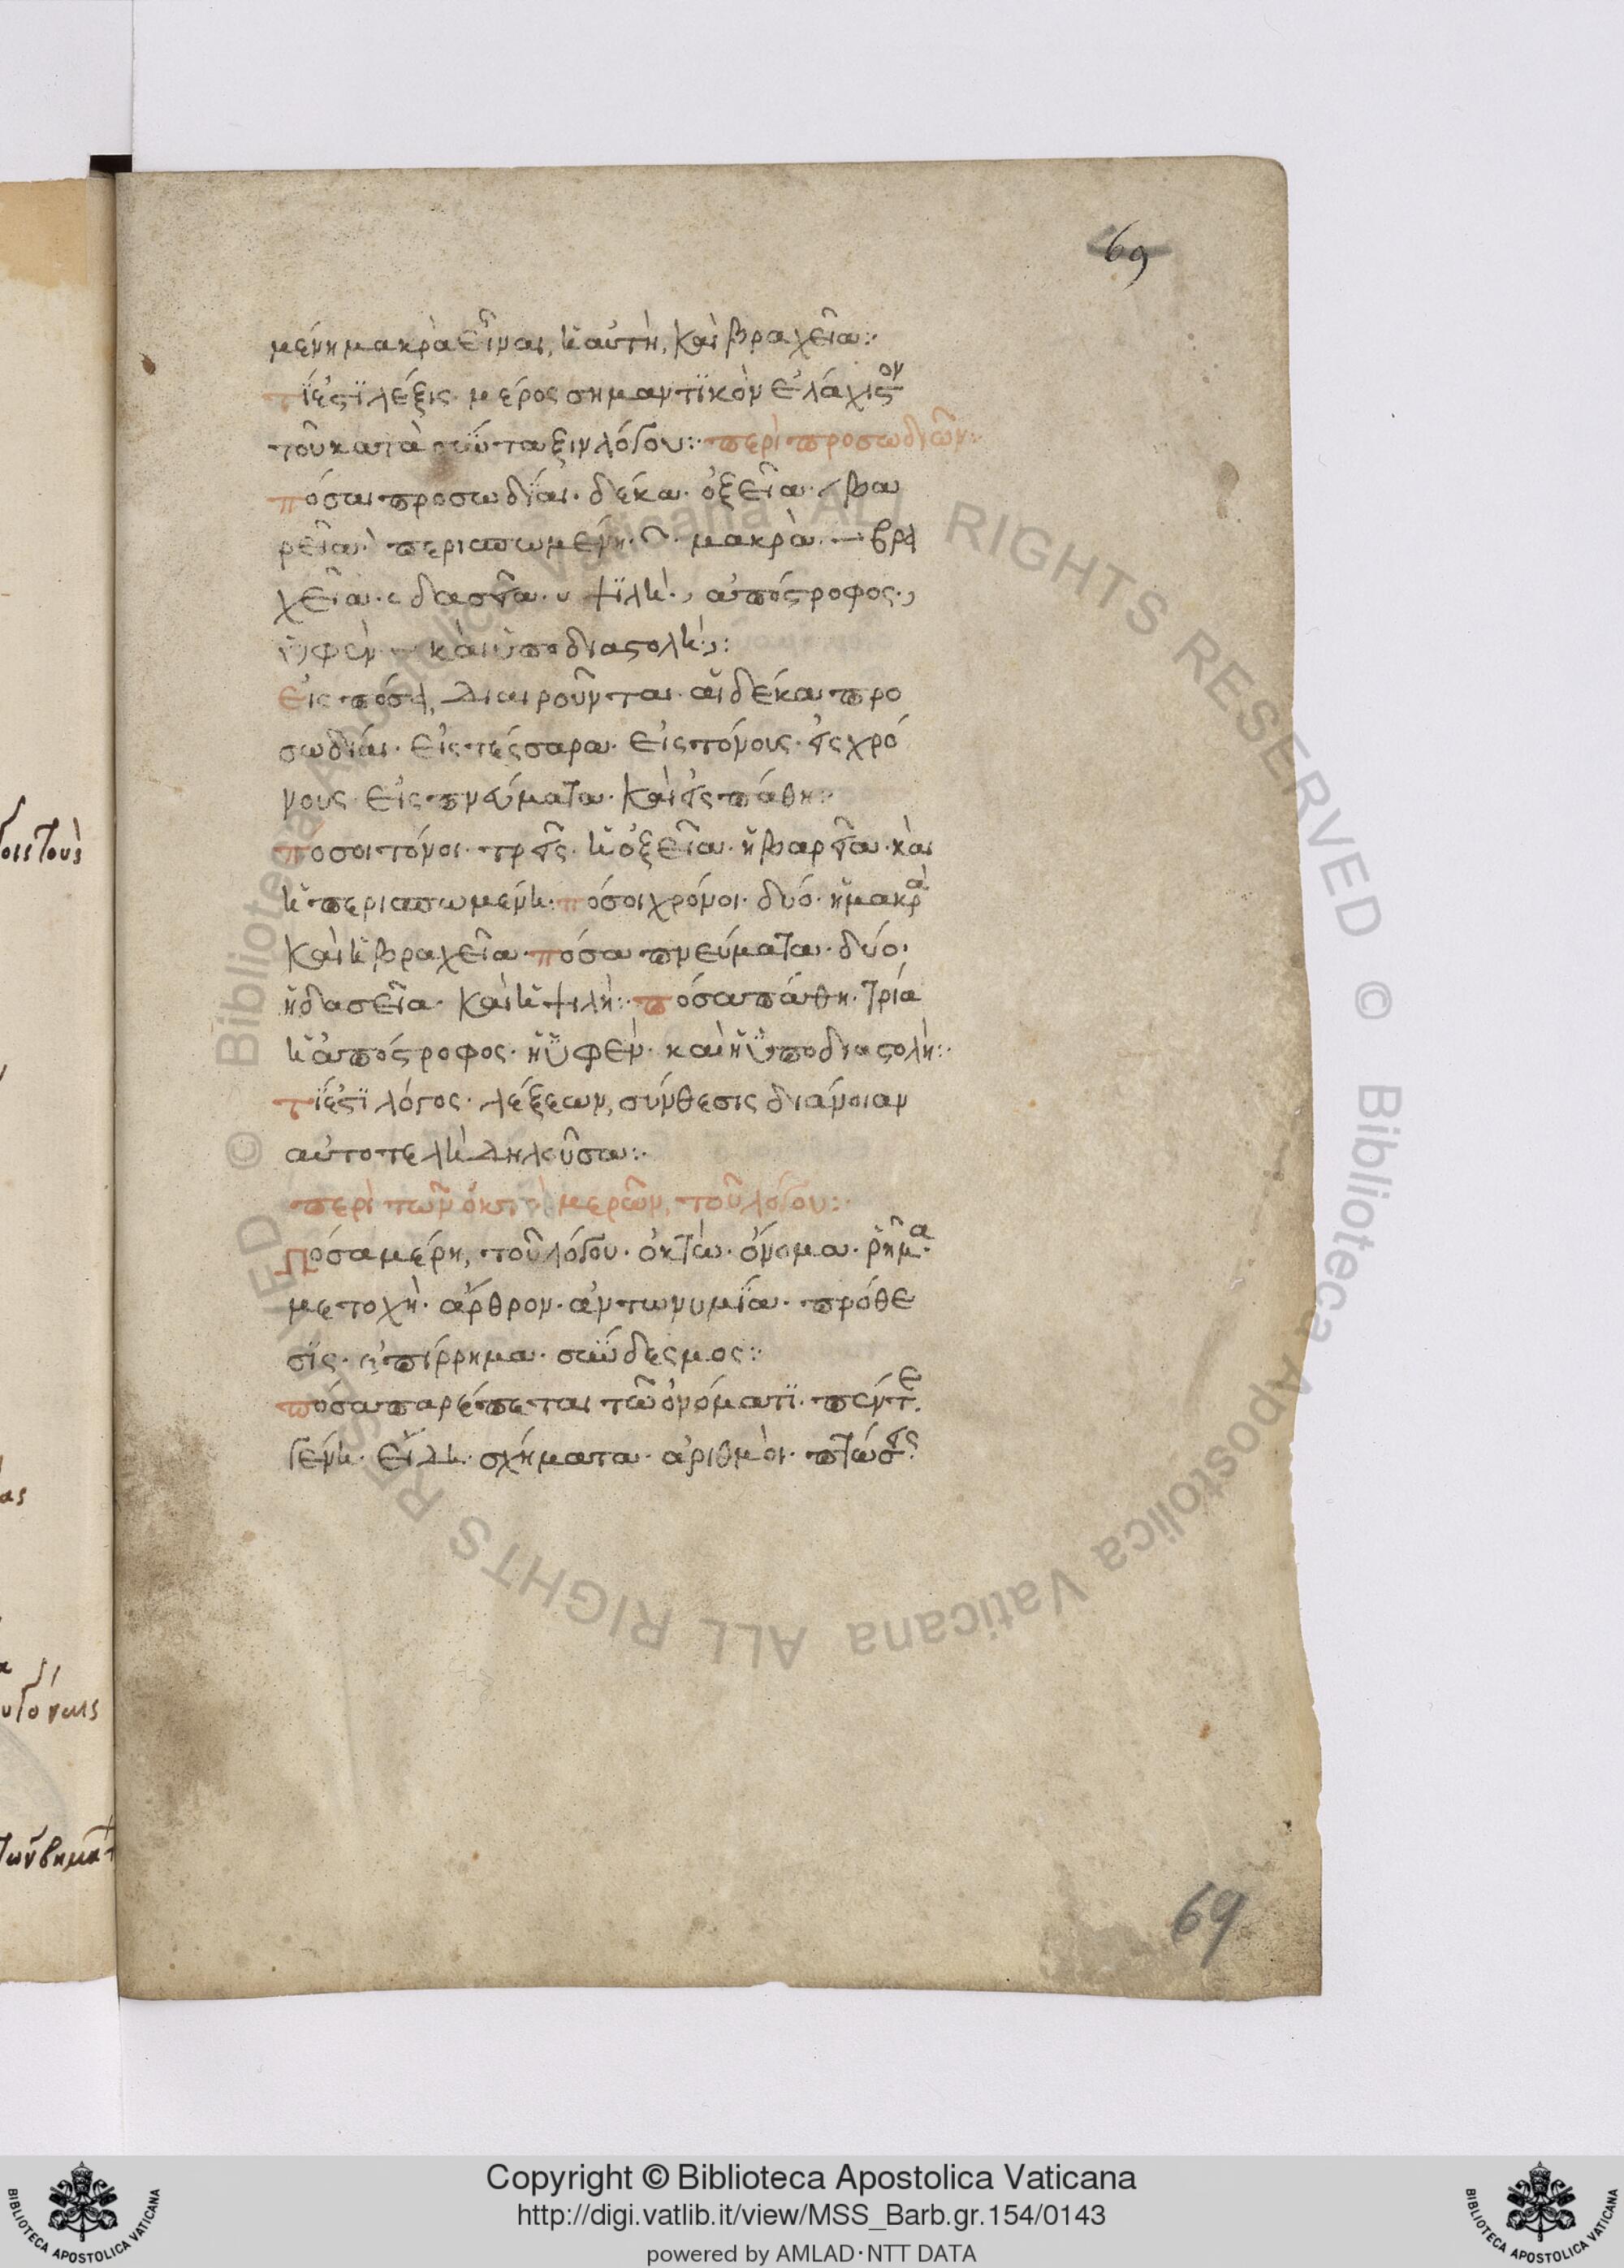 69
μένη μακρὰ εἶναι, ἢ αὐτὴ, καὶ βραχεῖα:·
τί ἐστὶ λέξις· μέρος σημαντικὸν ἐλάχιστον
τοῦ κατὰ σύνταξιν λόγου:· περὶ προσωδιῶν:·
πόσαι προσωδίαι· δέκα· ὀξεῖα· ´ βα
ρεῖα· ` περισπωμένη· ῀· μακρὰ· – βρα
χεῖα· ῾ δασεῖα· υ ψιλὴ· , ἀπόστροφος· ,
ὑφὲν ‿ καὶ ὑποδιαστολὴ· ,:
εἰς πόσα, διαιροῦνται· αἱ δέκα προ
σωδίαι· εἰς τέσσαρα· εἰς τόνους· εἰς χρό
νους· εἰς πνεύματα· καὶ εἰς πάθη:·
πόσοι τόνοι· τρεῖς· ἡ ὀξεῖα· ἡ βαρεῖα· καὶ
ἡ περισπωμένη· πόσοι χρόνοι· δύο· ἡ μακρὰ
καὶ ἡ βραχεῖα· πόσα πνεύματα· δύο·
ἡ δασεῖα· καὶ ἡ ψιλὴ:· πόσα πάθη· τρία
ἡ ἀπόστροφος· ἡ ὑφὲν· καὶ ἡ ὑποδιαστολὴ:·
τί ἐστὶ λόγος· λέξεων, σύνθεσις διάνοιαν
αὐτοτελῆ δηλοῦσα:·
περὶ τῶν ὀκτὼ μερῶν, τοῦ λόγου:·
Πόσα μέρη, τοῦ λόγου· ὀκτὼ· ὄνομα· ῥῆμα·
μετοχὴ· ἄρθρον· ἀντωνυμία· πρόθε
σις· ἐπίρρημα· σύνδεσμος:·
πόσα παρέπεται τῶ ὀνόματι· πέντε·
γένη· εἴδη· σχήματα· ἀριθμοὶ· πτώσεις·
69
Copyright © Biblioteca Apostolica Vaticana
http://digi.vatlib.it/view/MSS_Barb.gr.154/0143
powered by AMLAD·NTT DATA
BIBLIOTECA APOSTOLICA VATICANA
BIBLIOTECA APOSTOLICA VATICANA
© Biblioteca Apostolica Vaticana ALL RIGHTS RESERVED © Biblioteca Apostolica Vaticana ALL RIGHTS RESERVED